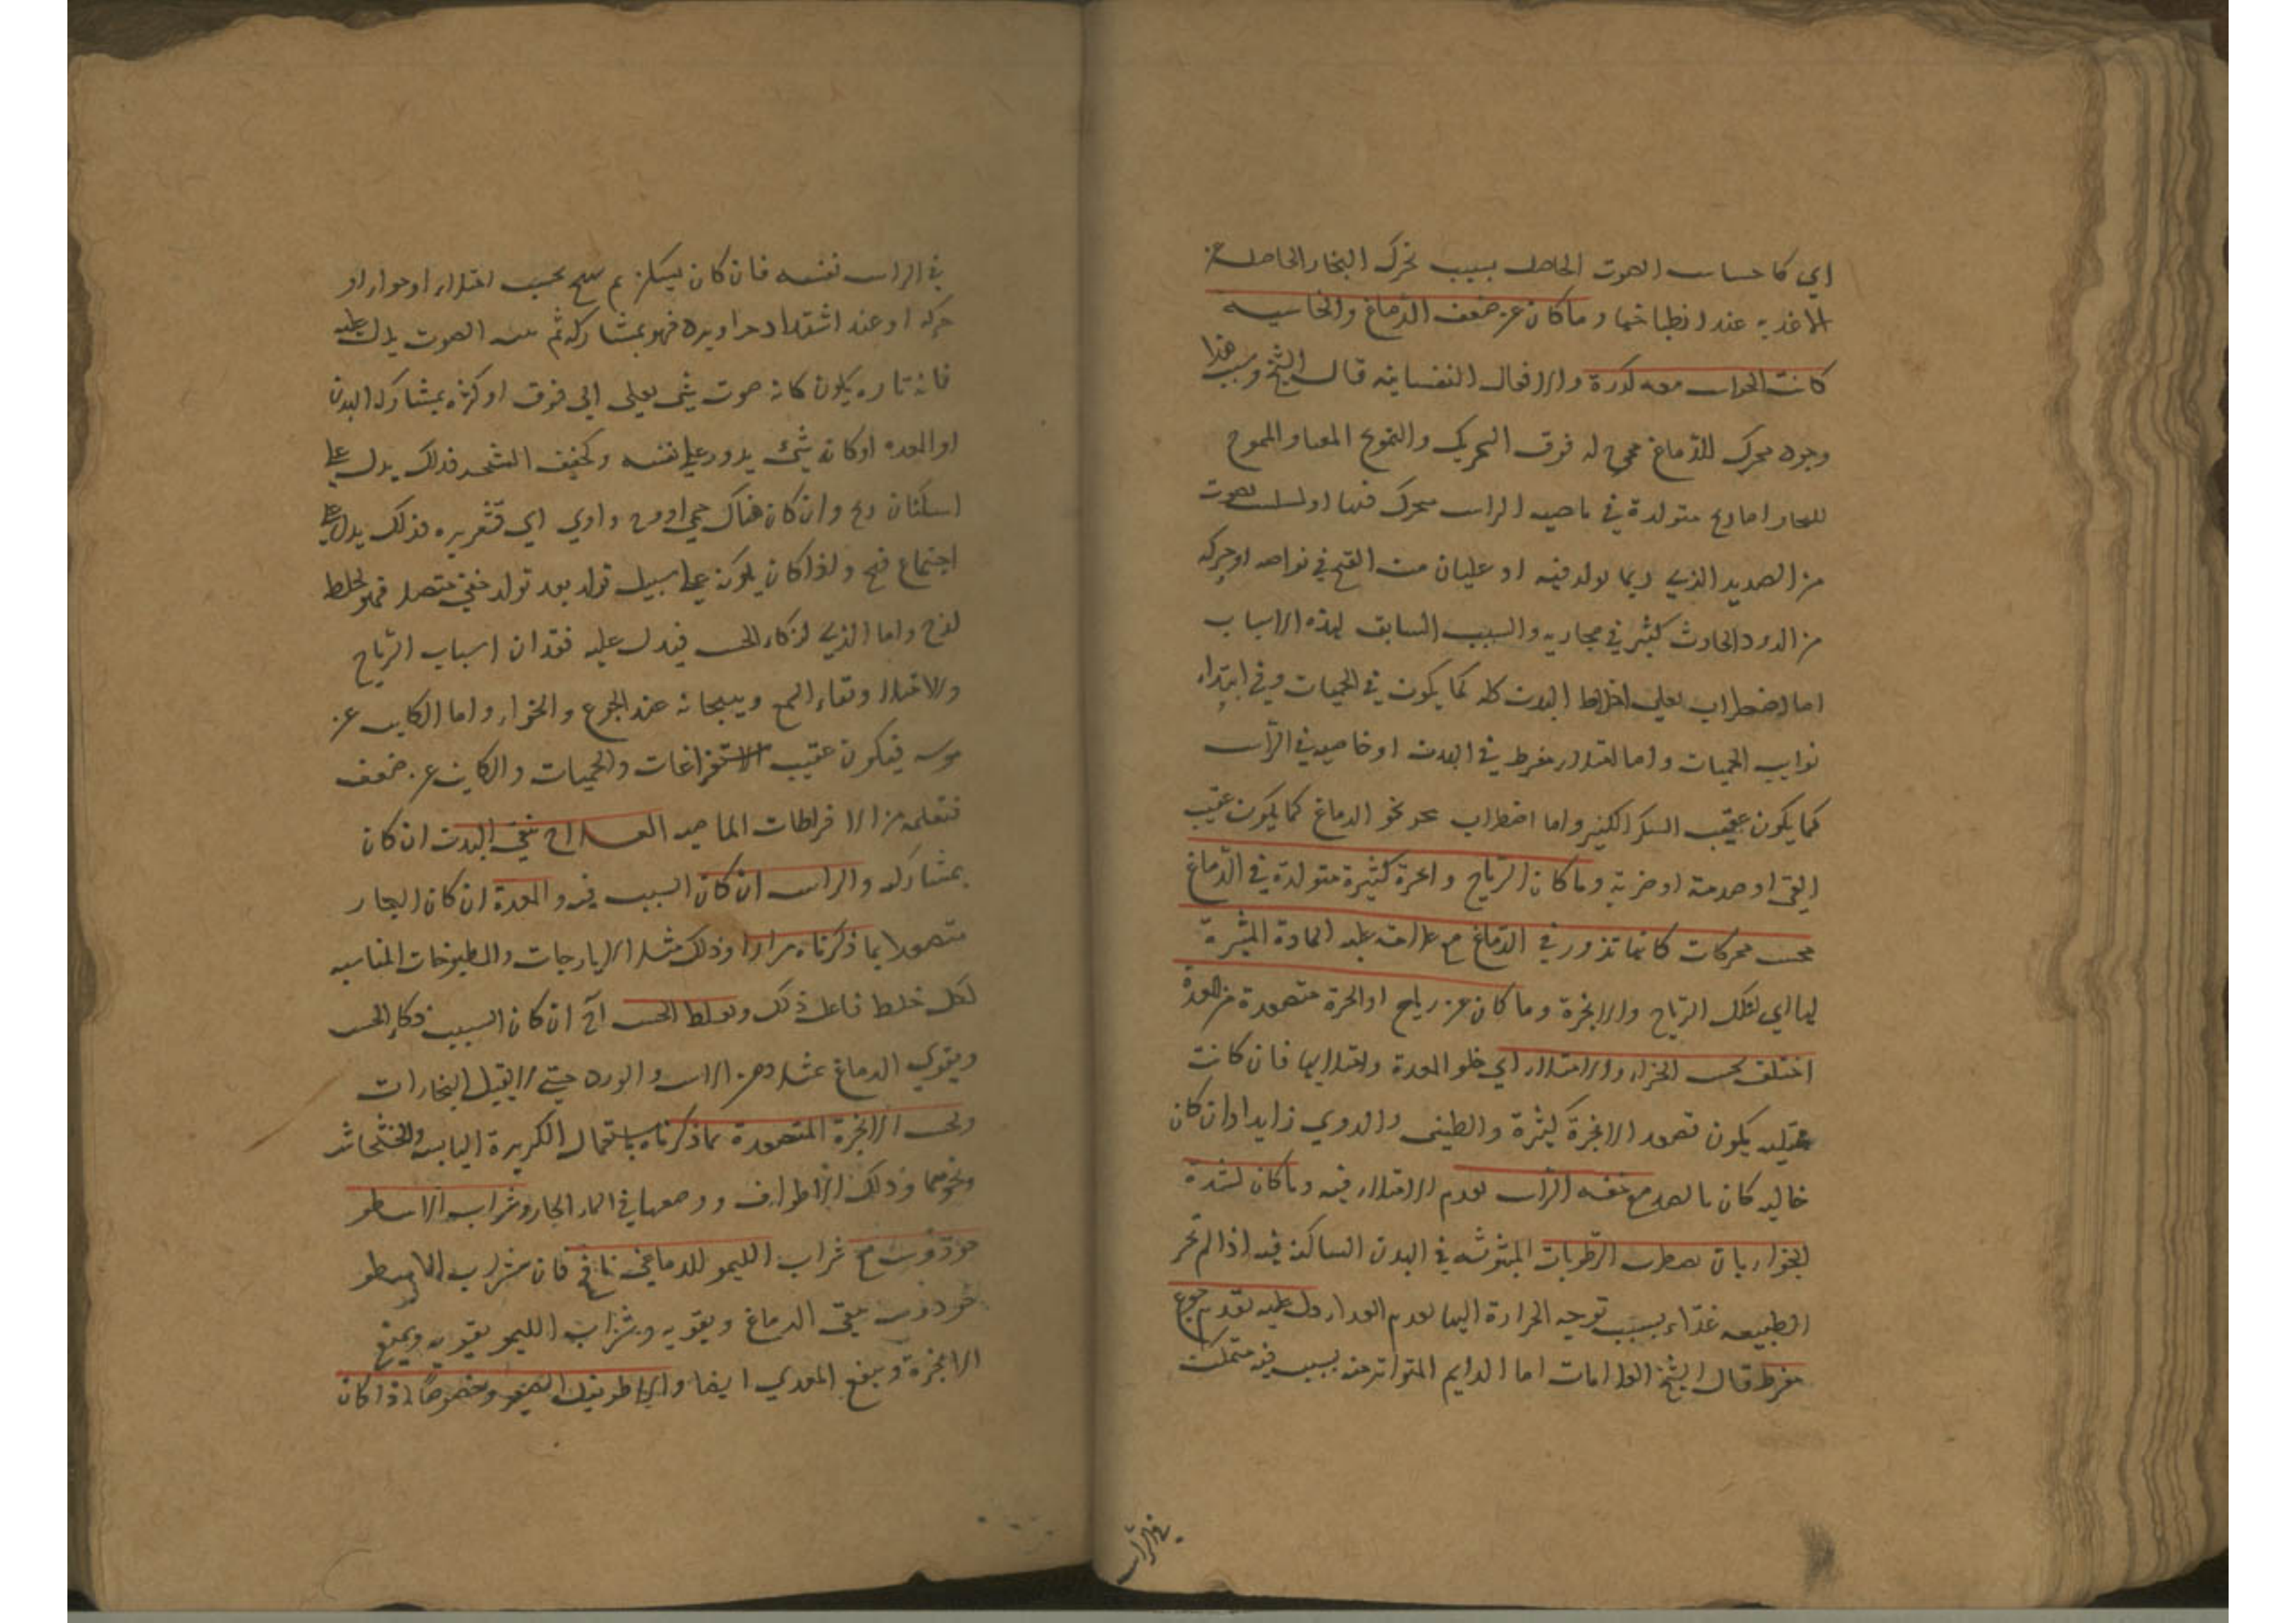 اي كاحساس الصوت الحاصل بسبب تحرك البخار الحاصل عن
الاغذيه عند انطباخها وما كان عن ضعف الدماغ والخاسيه
كانت الحواس معه كدرة والافعال النفسانيه قال الشيخ وسبب هذا
وجود محرك للدماغ له فوق التحريك والتموج المعتاد والمموج
للبخار اما ريح متولدة في ناحيه الراس متحرك فيها او لصوت
من الصديد الذي ربما تولد فيه او غليان من القيح في نواحيه او حركه
من الدود الحادث كثير في مجاريه والسبب السابق لهذه الاسباب
اما اضطراب يغلي اخلاط البدن كله كما يكون في الحميات وفي ابتداء
نوايب الحميات واما امتلاء مفرط في البدن او خاصيه في الراس
كما يكون عقيب السكر الكثير واما اضطراب نحو الدماغ كما يكون عقيب
القي او صدمة او ضربة وما كان الرياح وابخرة كثيرة متولدة في الدماغ
محس بحركات كانها تدور في الدماغ مع علامة غلبه المادة المثيرة
لها اي لتلك الرياح والابخرة وما كان عن رياح او ابخرة متصعدة من المعدة
اختلف بحسب الخواء والامتلاء اي خلو المعدة وامتلايها فان كانت
ممتليه يكون تصعد الابخرة كثيرة والطنين والدوي زايدا وان كان
خاليه كان بالضد مع خفه الراس لعدم الامتلاء فيه وما كان لشدة
الخواء بان يضطرب الرطوبات المبثوثه في البدن الساكنه فيه اذا لم تجد
الطبيعه غذاء بسبب توجه الحرارة اليها لعدم الغداء دل عليه تقدم جوع
مفرط قال الشيخ العلامات اما الدايم المتواتر منه بسبب فيه متمكن
في الراس
في الراس نفسه فان كان يسكن ثم يهيج بحسب امتلاء او خواء او
حركه او عند اشتداد حر او برد فهو بمشاركه ثم هيئه الصوت يدل عليه
فانه تاره يكون كانه صوت شي يغلي الي فوق او كثره بمشاركه البدن
او المعده او كانه شي يدور علي نفسه وكخفيف الشجر فذلك يدل علي
استكنان ريح وان كان هناك حمي ودوي اي قشعريره فذلك يدل علي
اجتماع قيح واذا كان يكون علي سبيل تولد بعد تولد خفي متصل فهو لخلط
لزج واما الذي لذكاء الحس فيدل عليه فقدان اسباب الرياح
والامتلاء ونقاء السمع وهيجانه عند الجوع والخواء واما الكاين عن
يبوسه فيكون عقيب الاستفراغات والحميات والكاين عن ضعف
فتعلمه من الافراطات الماضيه العلاج ينقي البدن ان كان
بمشاركه والراس ان كان السبب فيه والمعدة ان كان البخار
متصعدا بما ذكرناه مرارا وذلك مثل الايارجات والمطبوخات المناسبه
لكل خلط فاعل ذلك ويغلظ الحس ان كان السبب ذكاء الحس
ويقوي الدماغ بمثل دهن الاس والورد حتي لا يقبل البخارات
وتحبس الابخرة المتصعدة بما ذكرناه باستعمال الكزبرة اليابسه والخشخاش
ونحوهما وذلك الاطراف ووضعها في الماء الحار وشراب الاسطو
خودوس مع شراب الليمو للدماغي نافع فان شراب الاسطو
خودوس ينقي الدماغ ويقويه وشراب الليمو يقويه ويمنع
الابخرة وينفع المعدي ايضا والاطريفل الصغير وخصوصا اذا كان